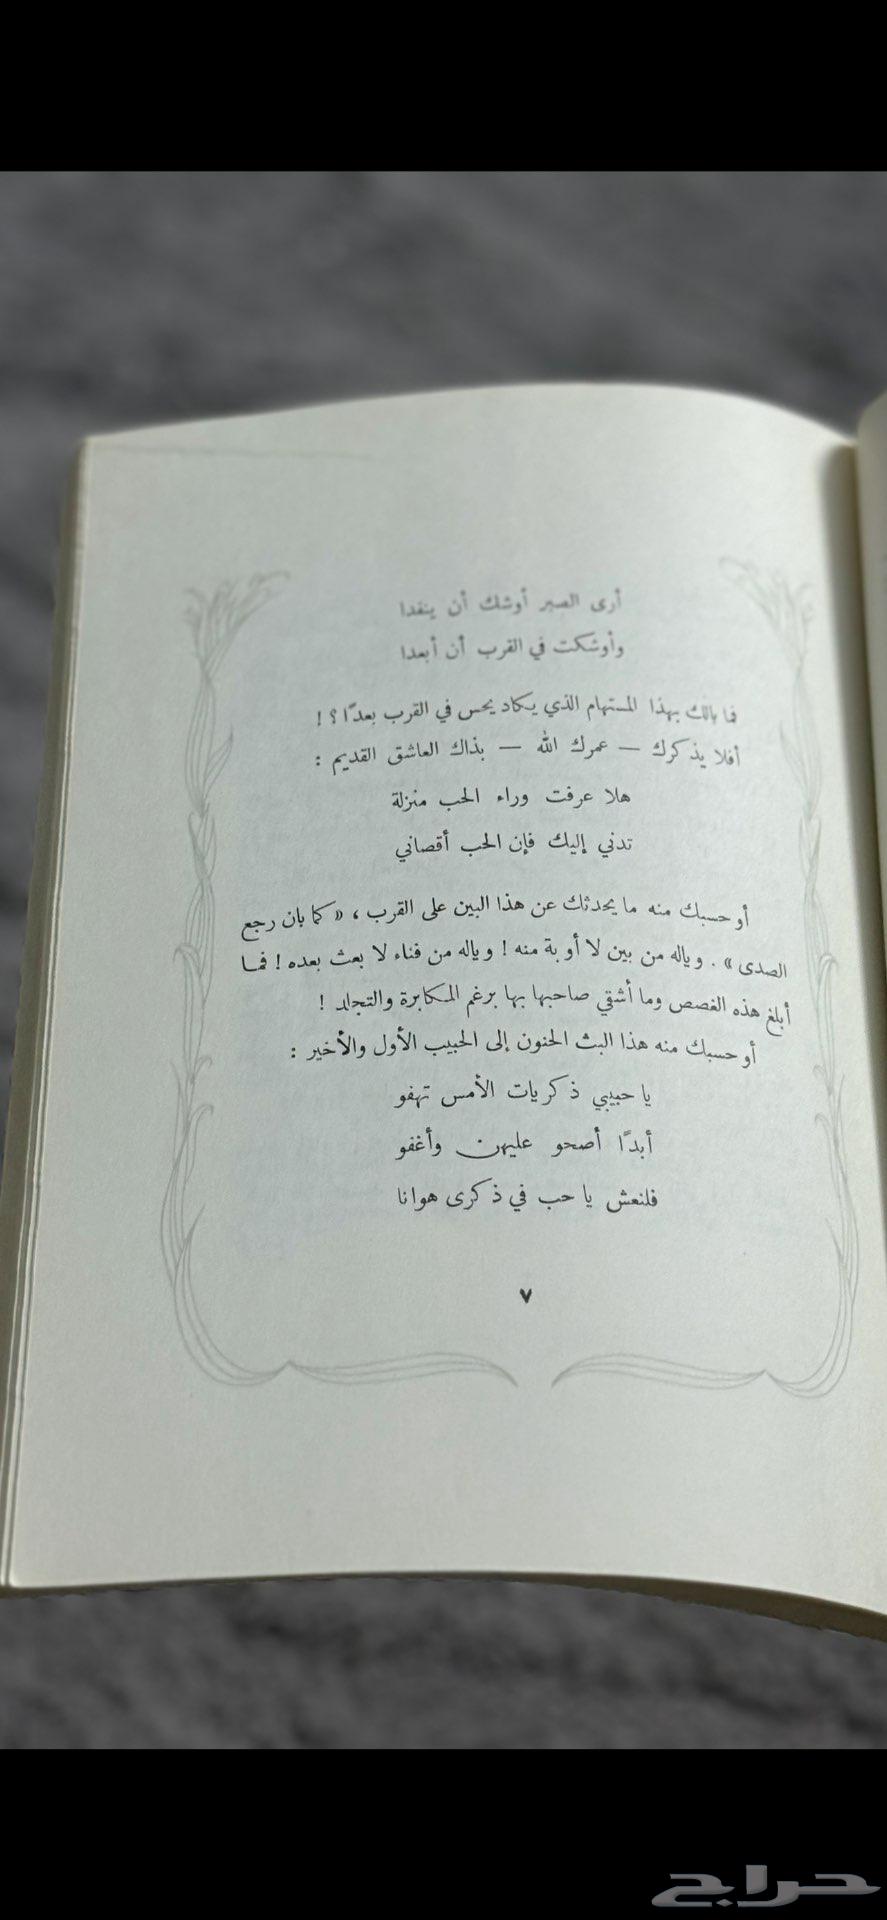 أرى الصبر أوشك أن ينفدا
وأوشكت في القرب أن أبعدا
فما بالك بهذا المستهام الذي يكاد يحس في القرب بعدًا ؟ !
أفلا يذكرك — عمرك الله — بذاك العاشق القديم :
هلا عرفت وراء الحب منزلة
تدني إليك فإن الحب أقصاني
أو حسبك منه ما يحدثك عن هذا البين على القرب ، « كما بان رجع
الصدى » . وياله من بين لا أوبة منه ! وياله من فناء لا بعث بعده ! فما
أبلغ هذه الغصص وما أشقي صاحبها بها برغم المكابرة والتجلد !
أو حسبك منه هذا البث الحنون إلى الحبيب الأول والأخير :
يا حبيبي ذكريات الأمس تهفو
أبدًا أصحو عليهن وأغفو
فلنعش يا حب في ذكرى هوانا
٧
حراج